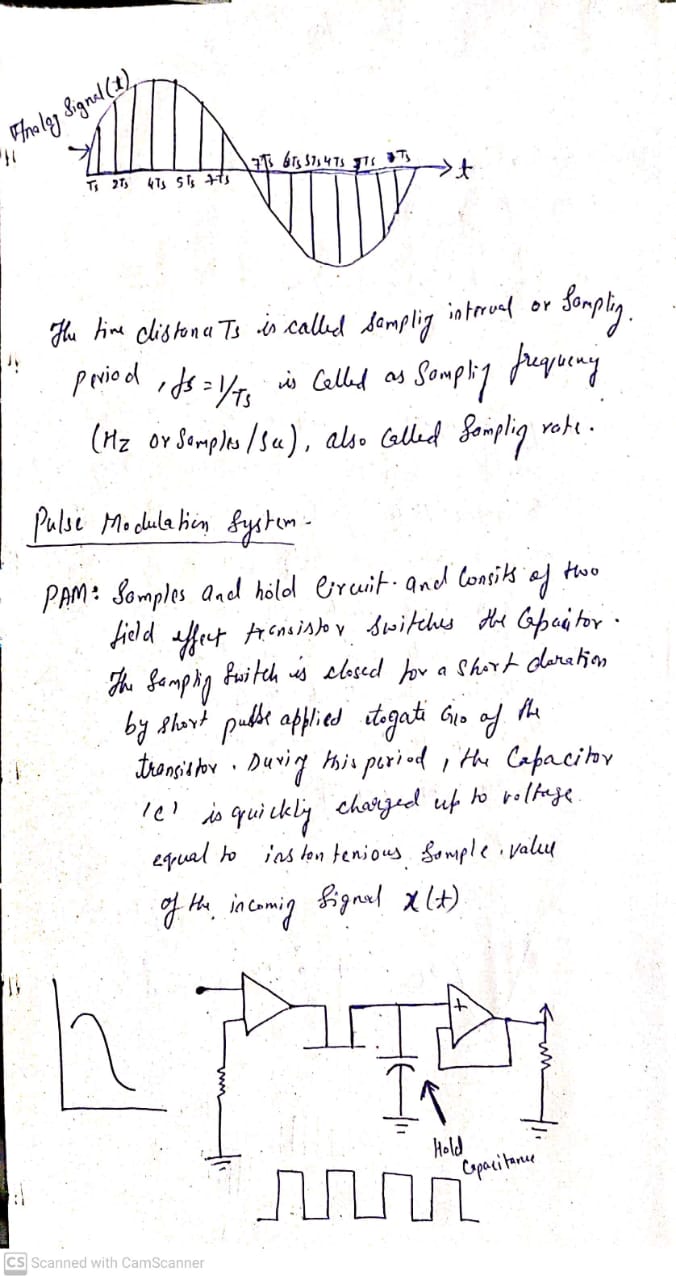 Analog Signal (t)
7Ts 6Ts 5Ts 4Ts Ts Ts
t
Ts 2Ts 4Ts 5Ts 7Ts
The time distance Ts is called Samplig interval or Samplig.
Period , fs = 1/Ts is Called as Samplig frequency
(Hz or Samples / Sec), also Called Samplig rate.
Pulse Modulation System -
PAM: Samples and hold Circuit. and Consits of two
field effect transistor Switches the Capacitor.
The Samplig Switch is closed for a Short duration
by Short applied G10 of the
transistor . Durig this period , the Capacitor
'c' is quickly charged up to voltage
equal to Sample value
of the incomig Signal x(t)
+
Hold
Capacitance
CS Scanned with CamScanner